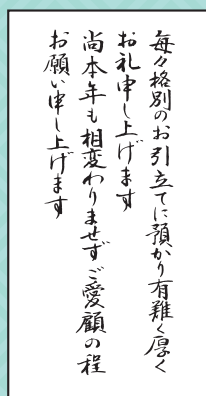 毎々格別のお引立てに預かり有難く厚く
お礼申し上げます
尚本年も相変わりませずご愛顧の程
お願い申し上げます